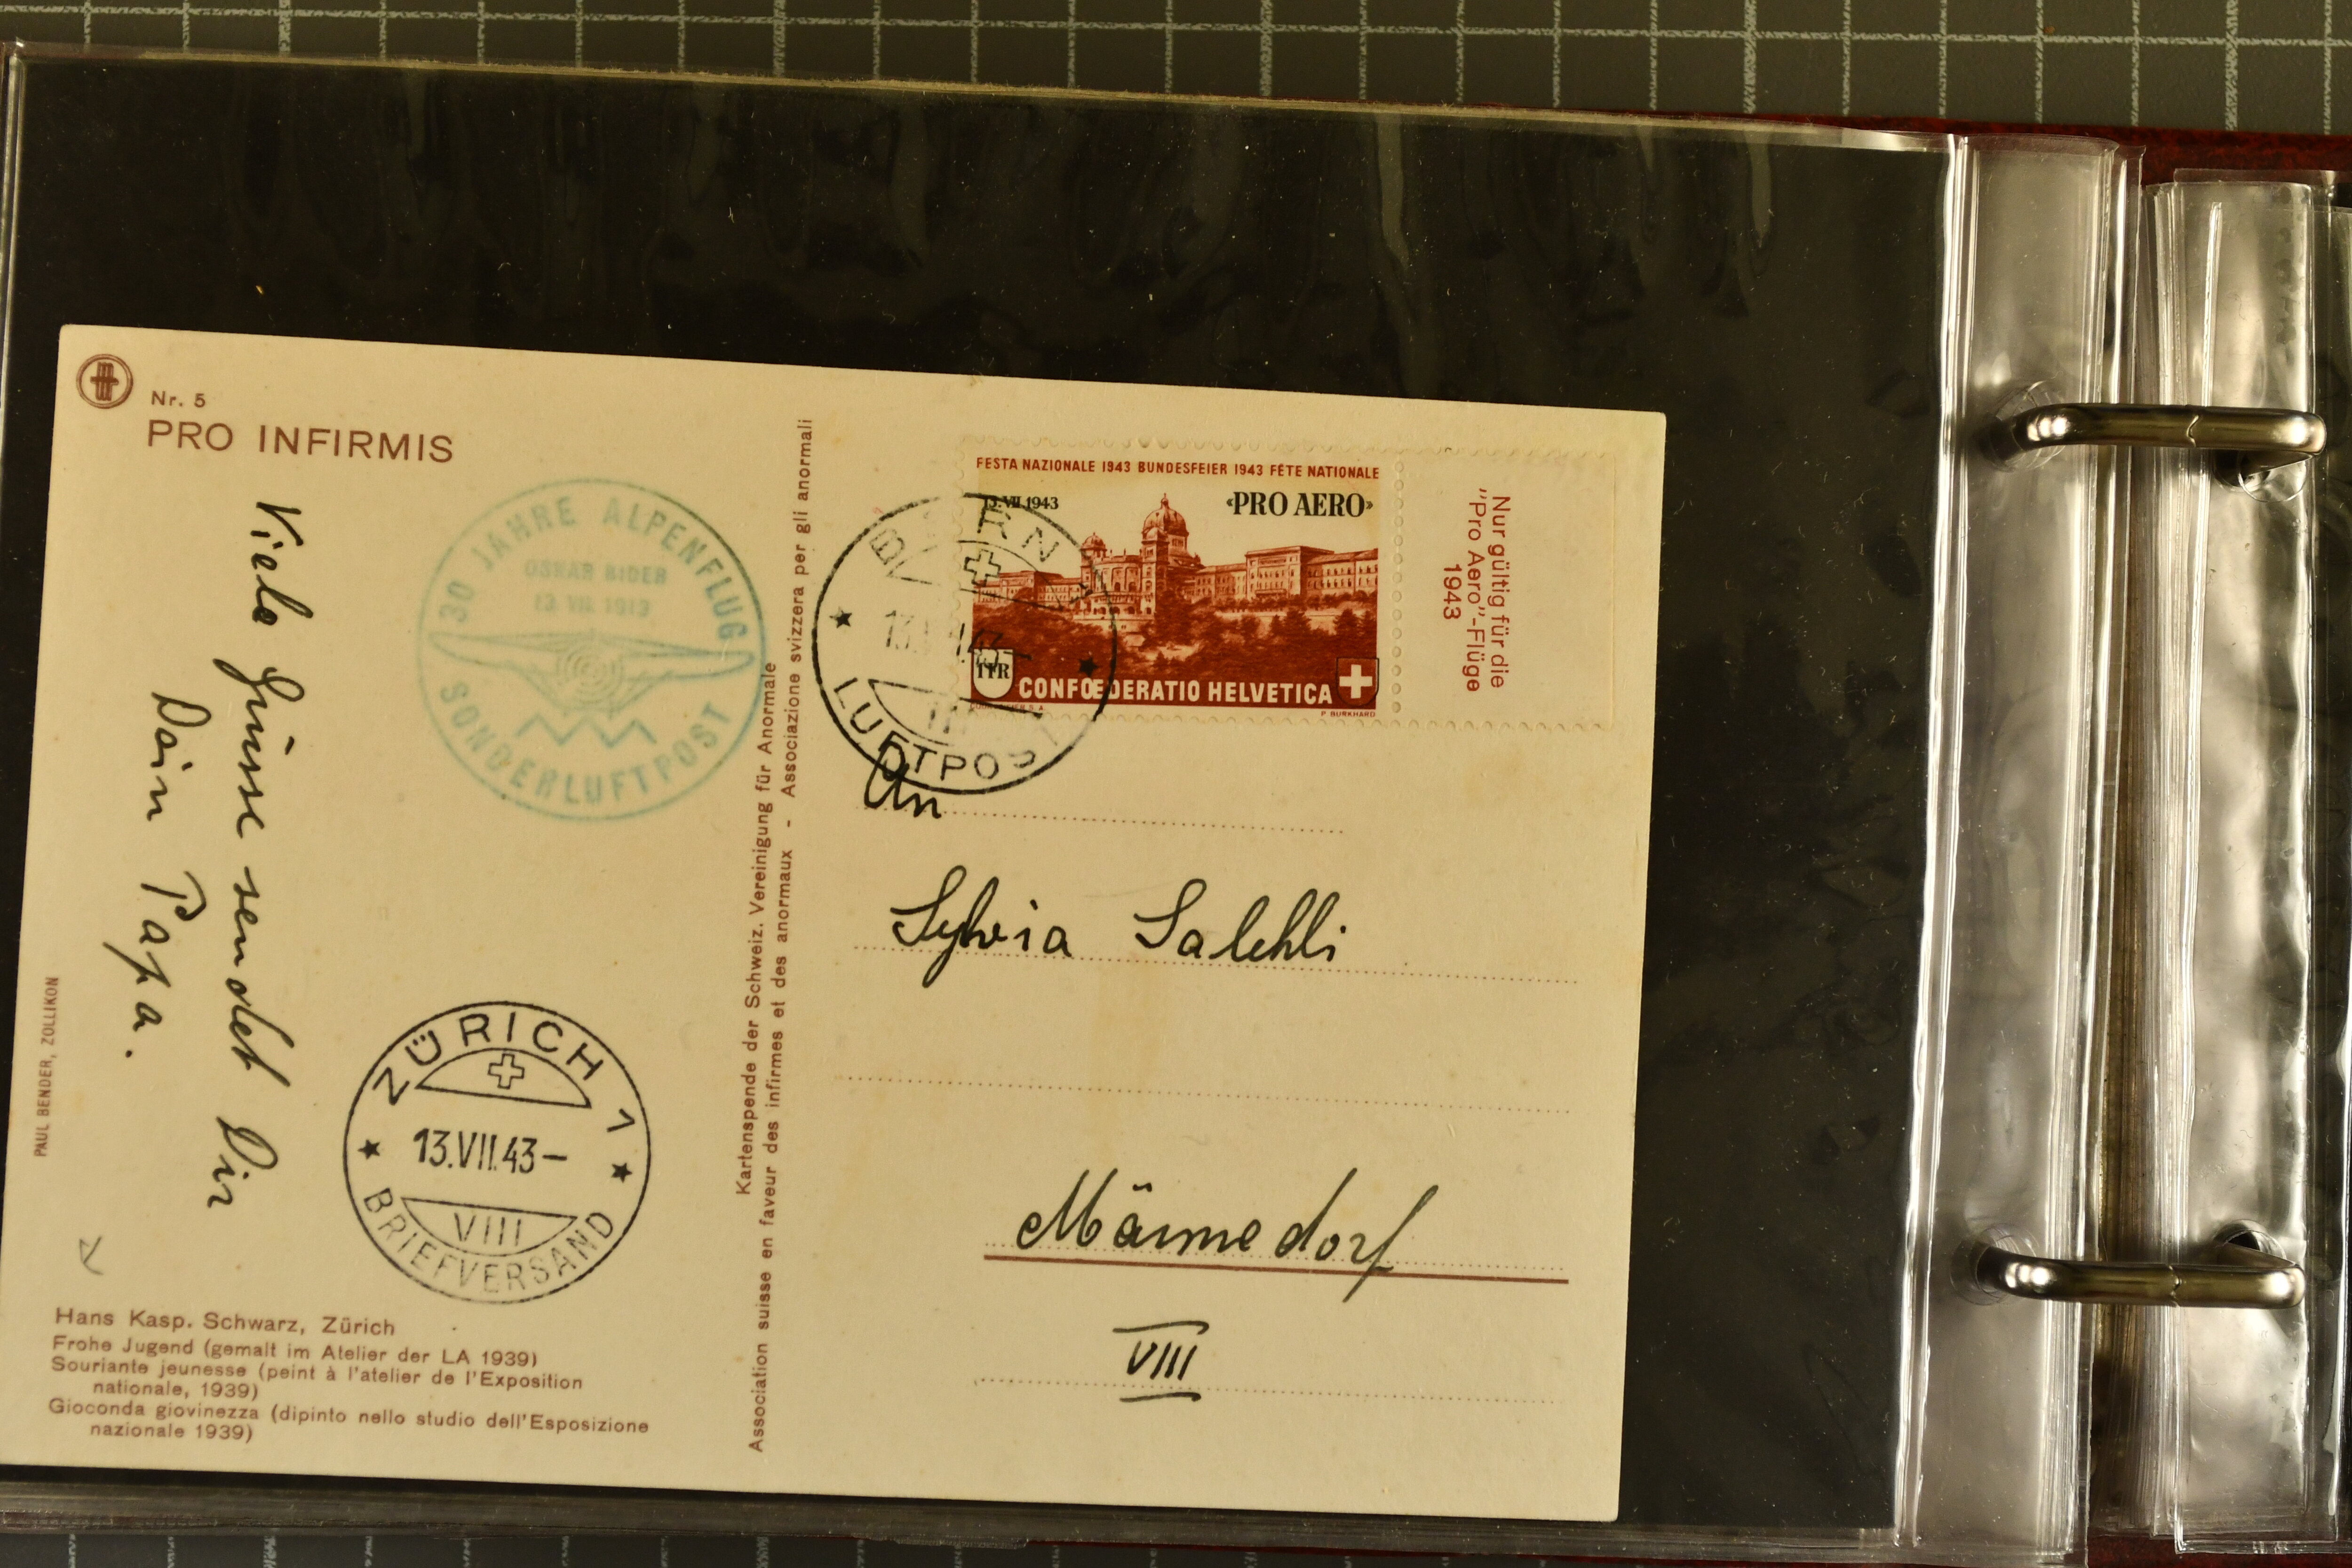 Nr. 5
PRO INFIRMIS
Viele Grüsse sendet Dir
Dein Papa.
30 JAHRE ALPENFLUG
OSKAR BIDER
13. VII. 1913
SONDERLUFTPOST
ZÜRICH 1
13.VII.43-
VIII
BRIEFVERSAND
PAUL BENDER, ZOLLIKON
Hans Kasp. Schwarz, Zürich
Frohe Jugend (gemalt im Atelier der LA 1939)
Souriante jeunesse (peint à l'atelier de l'Exposition
nationale, 1939)
Gioconda giovinezza (dipinto nello studio dell'Esposizione
nazionale 1939)
Kartenspende der Schweiz. Vereinigung für Anormale
Association suisse en faveur des infirmes et des anormaux - Associazione svizzera per gli anormali
FESTA NAZIONALE 1943 BUNDESFEIER 1943 FÊTE NATIONALE
13.VII.1943 «PRO AERO»
1FR
CONFŒDERATIO HELVETICA
P. BURKHARD
Nur gültig für die
"Pro Aero"-Flüge
1943
BERN
LUFTPOST
An
Sylvia
Männedorf
VIII